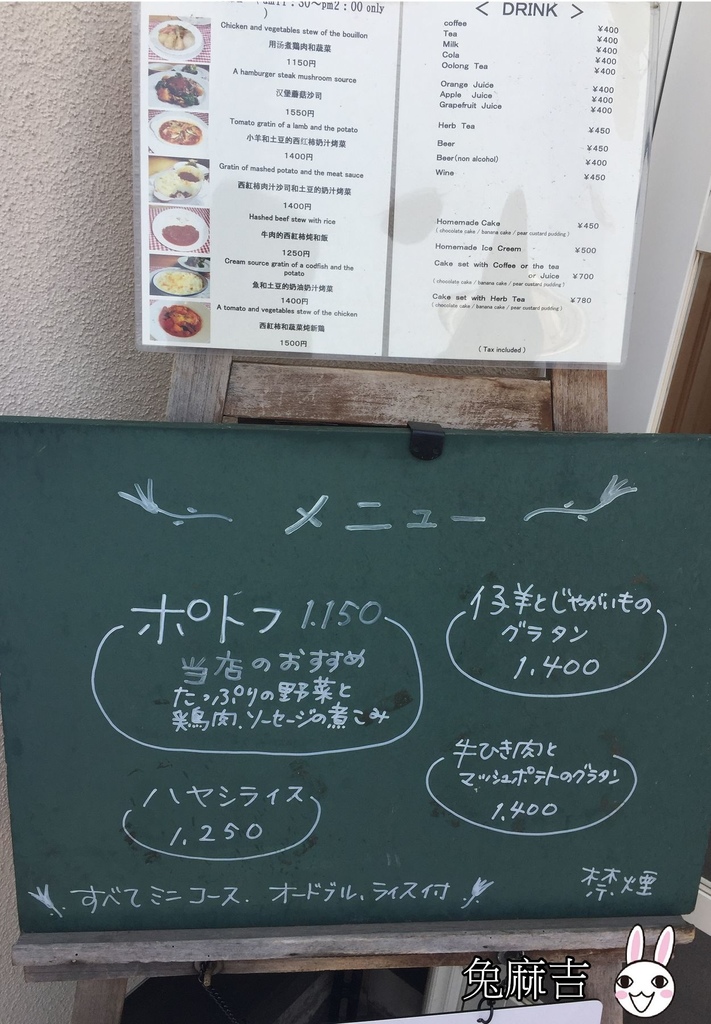 pm2:00 only
)
Chicken and vegetables stew of the bouillon
用汤煮鶏肉和蔬菜
1150円
A hamburger steak mushroom source
汉堡蘑菇沙司
1550円
Tomato gratin of a lamb and the potato
小羊和土豆的西红柿奶汁烤菜
1400円
Gratin of mashed potato and the meat sauce
西紅柿肉汁沙司和土豆的奶汁烤菜
1400円
Hashed beef stew with rice
牛肉的西紅柿炖和飯
1250円
Cream source gratin of a codfish and the
potato
鱼和土豆的奶油奶汁烤菜
1400円
A tomato and vegetables stew of the chicken
西紅柿和蔬菜炖新鶏
1500円
< DRINK >
coffee ¥400
Tea ¥400
Milk ¥400
Cola ¥400
Oolong Tea ¥400
Orange Juice ¥400
Apple Juice ¥400
Grapefruit Juice ¥400
Herb Tea ¥450
Beer ¥450
Beer(non alcohol) ¥400
Wine ¥450
Homemade Cake ¥450
( chocolate cake / banana cake / pear custard pudding )
Homemade Ice Creem ¥500
Cake set with Coffee or the tea
or Juice ¥700
( chocolate cake / banana cake / pear custard pudding )
Cake set with Herb Tea ¥780
( chocolate cake / banana cake / pear custard pudding )
( Tax included )
メニュー
ポトフ 1.150
当店のおすすめ
たっぷりの野菜と
鶏肉、ソーセージの煮こみ
仔羊とじゃがいもの
グラタン
1.400
ハヤシライス
1.250
牛ひき肉と
マッシュポテトのグラタン
1.400
すべてミニコース、オードブル、ライス付
禁煙
兔麻吉